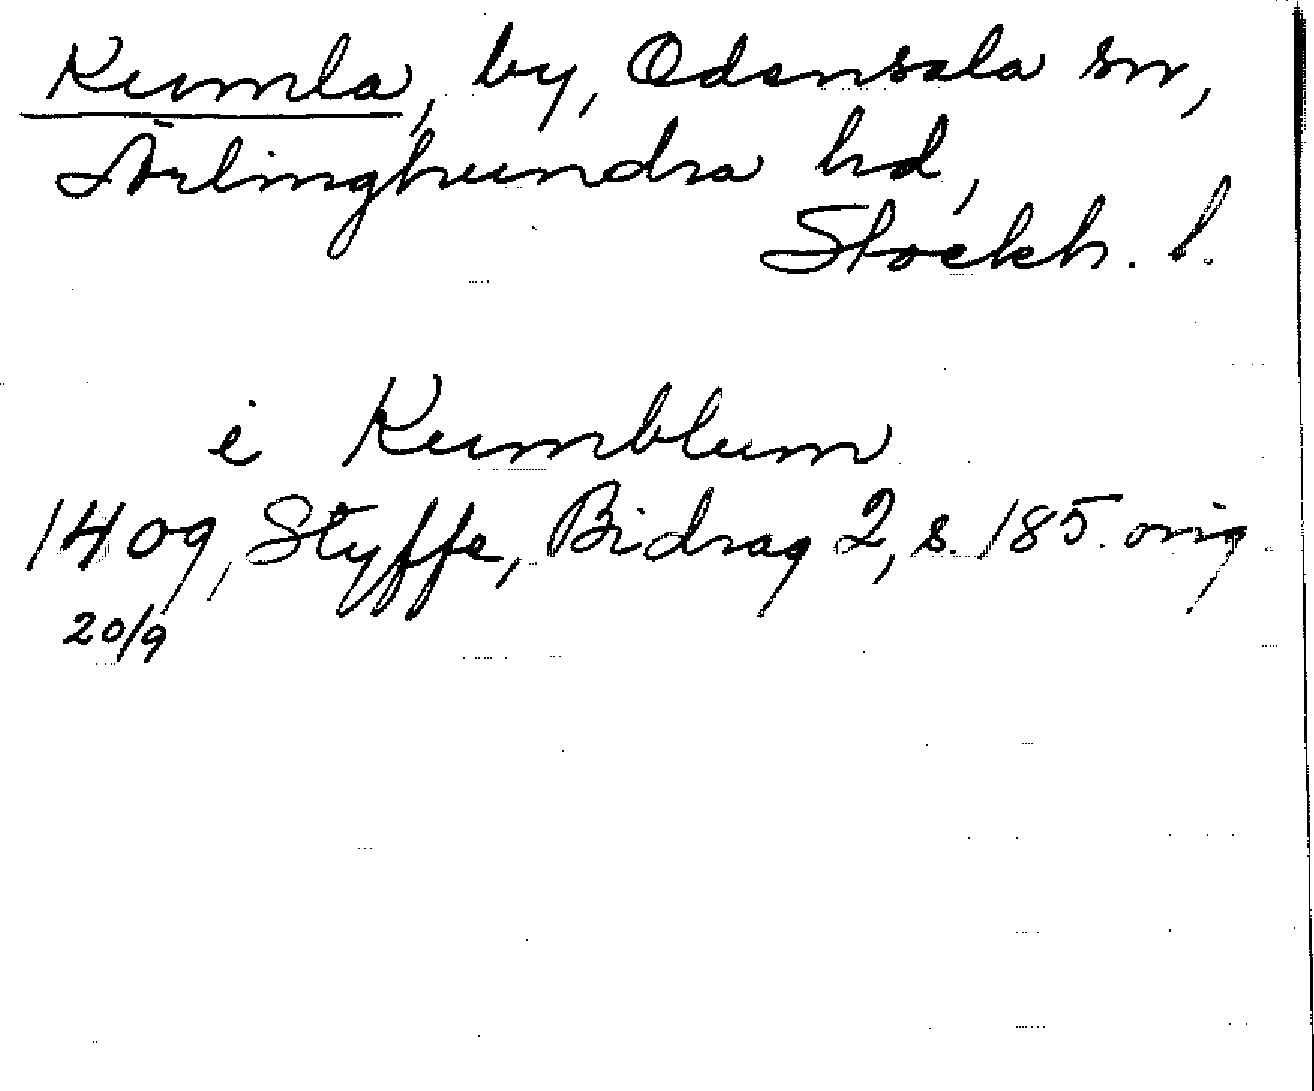 Kumla, by, Odensala sn,
Ärlinghundra hd,
Stockh. l.
i Kumblum
1409, Styffe, Bidrag 2, s. 185. orig
20/9